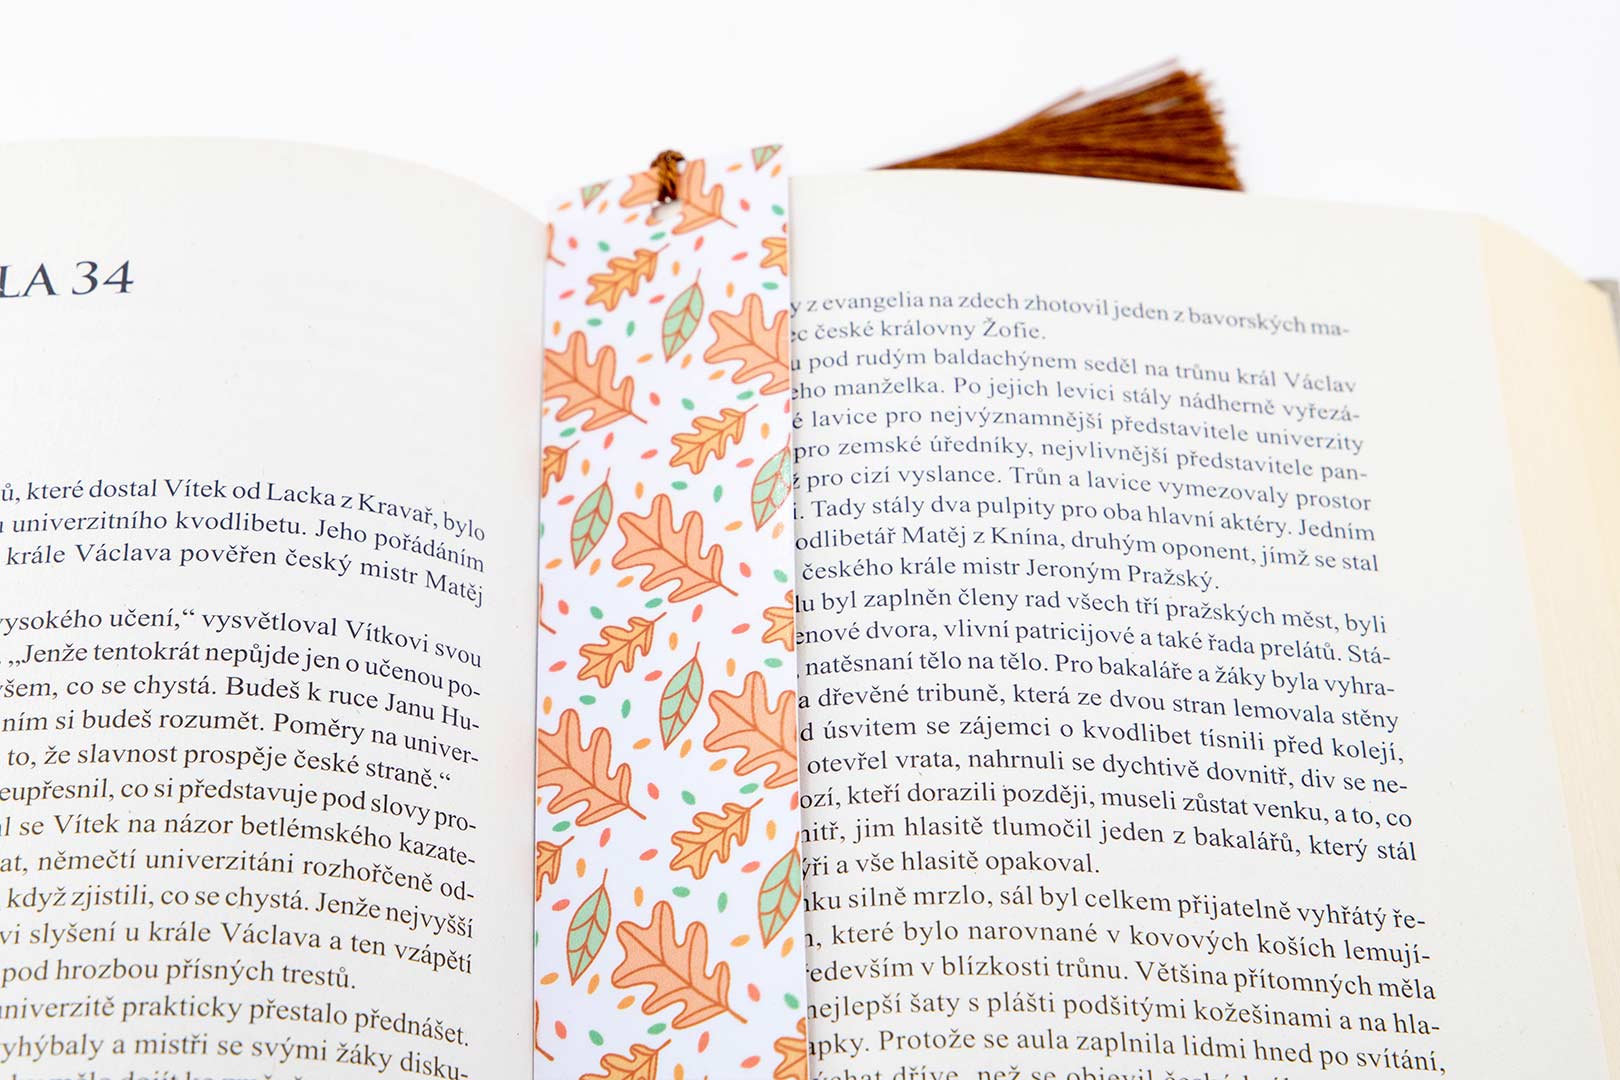 LA 34
ů, které dostal Vítek od Lacka z Kravař, bylo
univerzitního kvodlibetu. Jeho pořádáním
krále Václava pověřen český mistr Matěj
vysokého učení,“ vysvětloval Vítkovi svou
„Jenže tentokrát nepůjde jen o učenou po-
všem, co se chystá. Budeš k ruce Janu Hu-
ním si budeš rozumět. Poměry na univer-
to, že slavnost prospěje české straně.“
eupřesnil, co si představuje pod slovy pro-
al se Vítek na názor betlémského kazate-
at, němečtí univerzitáni rozhořčeně od-
když zjistili, co se chystá. Jenže nejvyšší
vi slyšení u krále Václava a ten vzápětí
pod hrozbou přísných trestů.
univerzitě prakticky přestalo přednášet.
yhýbaly a mistři se svými žáky disku-
y z evangelia na zdech zhotovil jeden z bavorských ma-
ec české královny Žofie.
u pod rudým baldachýnem seděl na trůnu král Václav
eho manželka. Po jejich levici stály nádherně vyřezá-
é lavice pro nejvýznamnější představitele univerzity
pro zemské úředníky, nejvlivnější představitele pan-
ž pro cizí vyslance. Trůn a lavice vymezovaly prostor
i. Tady stály dva pulpity pro oba hlavní aktéry. Jedním
odlibetář Matěj z Knína, druhým oponent, jímž se stal
českého krále mistr Jeroným Pražský.
lu byl zaplněn členy rad všech tří pražských měst, byli
enové dvora, vlivní patricijové a také řada prelátů. Stá-
natěsnaní tělo na tělo. Pro bakaláře a žáky byla vyhra-
a dřevěné tribuně, která ze dvou stran lemovala stěny
d úsvitem se zájemci o kvodlibet tísnili před kolejí,
otevřel vrata, nahrnuli se dychtivě dovnitř, div se ne-
ozí, kteří dorazili později, museli zůstat venku, a to, co
nitř, jim hlasitě tlumočil jeden z bakalářů, který stál
ýři a vše hlasitě opakoval.
nku silně mrzlo, sál byl celkem přijatelně vyhřátý ře-
, které bylo narovnané v kovových koších lemují-
ředevším v blízkosti trůnu. Většina přítomných měla
nejlepší šaty s plášti podšitými kožešinami a na hla-
apky. Protože se aula zaplnila lidmi hned po svítání,
dříve, než se objevil